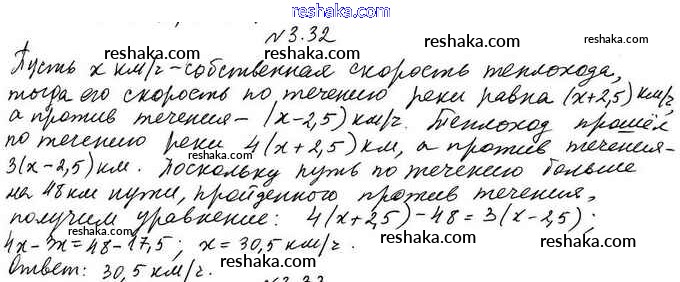 reshaka.ru
№3.32
Пусть x км/ч - собственная скорость теплохода,
тогда его скорость по течению реки равна (x+2,5) км/ч,
а против течения - (x-2,5) км/ч. Теплоход прошёл
по течению реки 4(x+2,5) км, а против течения -
3(x-2,5) км. Поскольку путь по течению больше
на 48 км пути, пройденного против течения,
получим уравнение: 4(x+2,5)-48=3(x-2,5);
4x-3x=48-17,5; x=30,5 км/ч.
Ответ: 30,5 км/ч.
№3.33